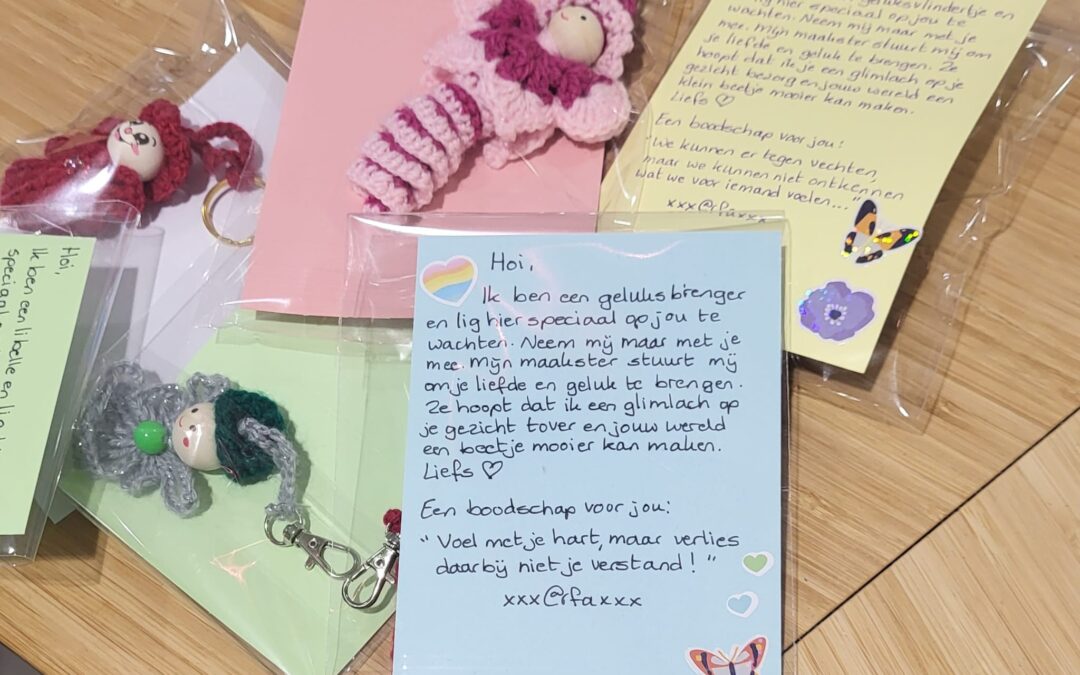 geluksvlindertje en
lig hier speciaal op jou te
wachten. Neem mij maar met je
mee. Mijn maakster stuurt mij om
je liefde en geluk te brengen. Ze
hoopt dat ik je een glimlach op je
gezicht bezorg en jouw wereld een
klein beetje mooier kan maken.
Liefs ♡
Een boodschap voor jou!
"We kunnen er tegen vechten,
maar we kunnen niet ontkennen
wat we voor iemand voelen..."
Hoi,
Ik ben een libelle en
speciaal
Hoi,
Ik ben een geluksbrenger
en lig hier speciaal op jou te
wachten. Neem mij maar met je
mee. Mijn maakster stuurt mij
om je liefde en geluk te brengen.
Ze hoopt dat ik een glimlach op
je gezicht tover en jouw wereld
een beetje mooier kan maken.
Liefs ♡
Een boodschap voor jou:
"Voel met je hart, maar verlies
daarbij niet je verstand!"
xxx@rfaxxx